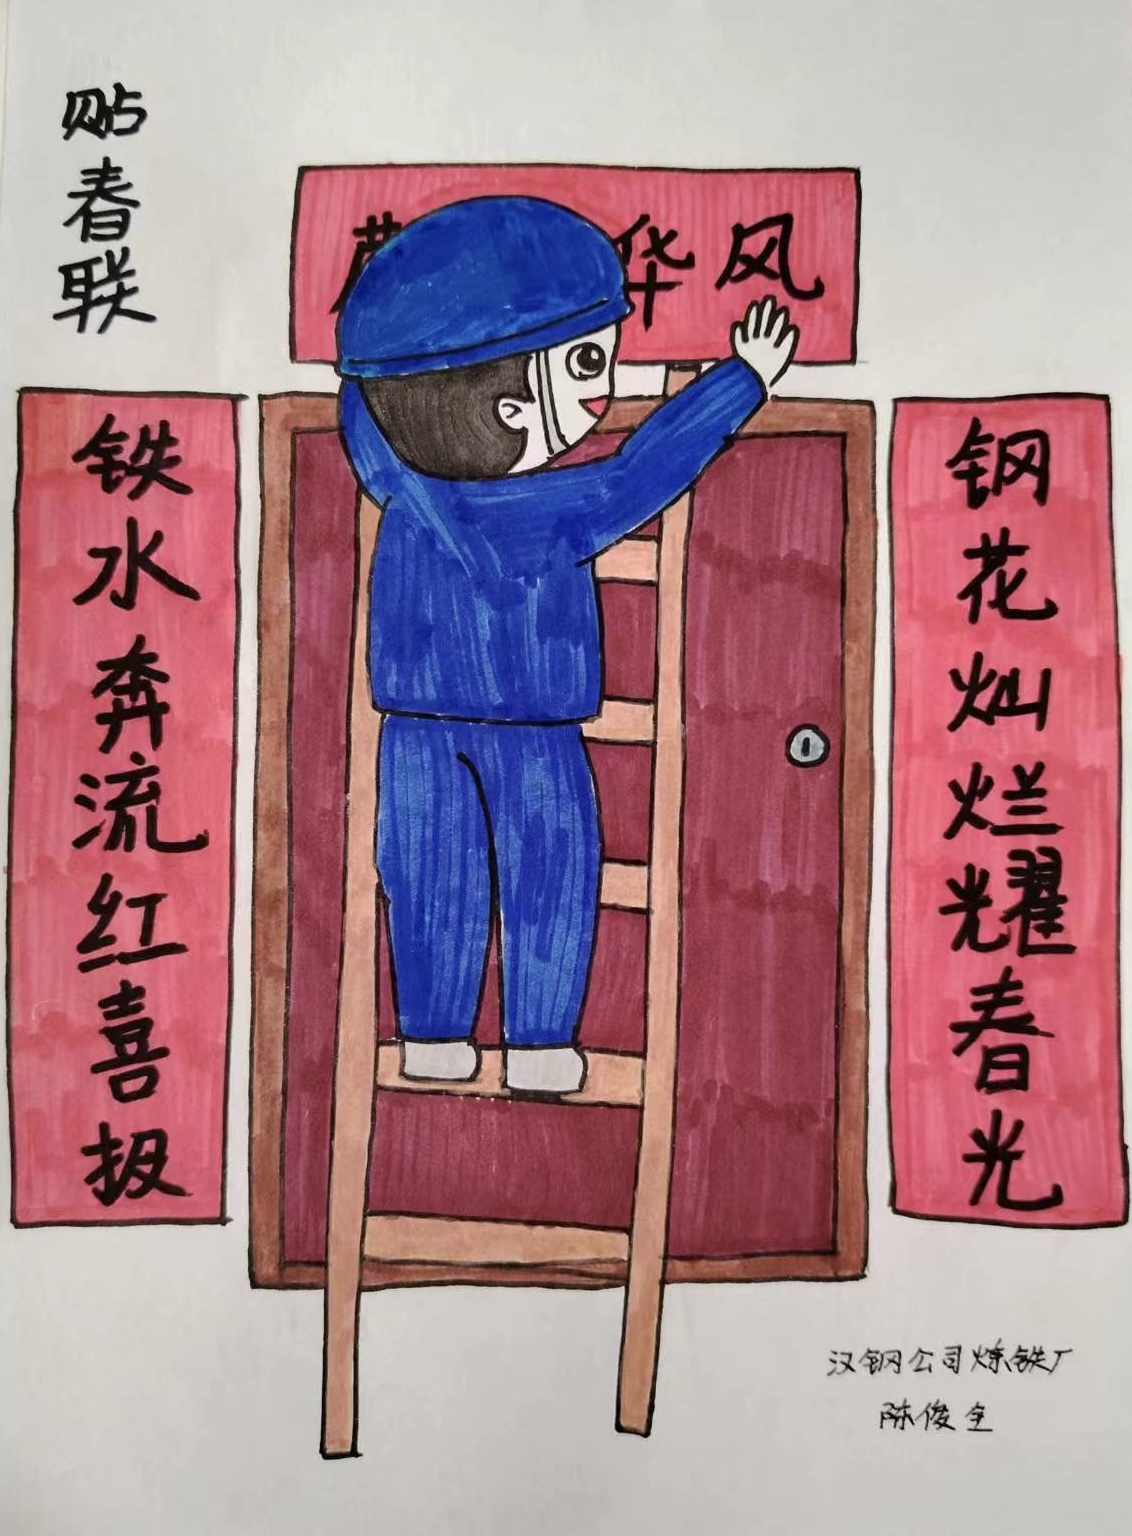 贴春联
风华
钢花灿烂耀春光
铁水奔流红喜报
汉钢公司炼铁厂
陈俊全